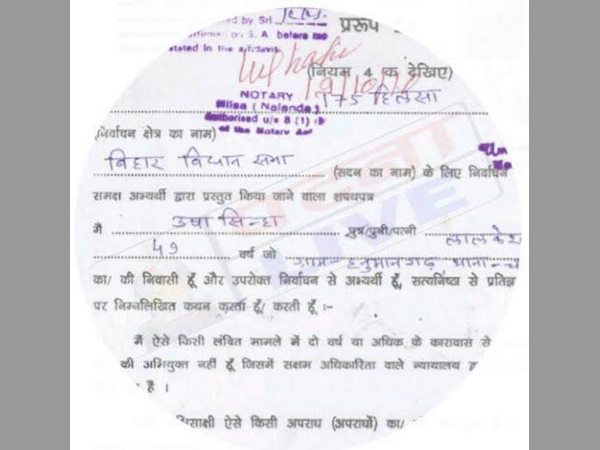 by Sri
प्ररूप
S. A before me
stated in the affidavit
(नियम 4 क देखिए)
19/10/10
NOTARY
175 हिलसा
Hilsa (Nalanda)
Authorised u/s 8 (1)
of the Notary Act
निर्वाचन क्षेत्र का नाम)
बिहार विधान सभा
(सदन का नाम) के लिए निर्वाचन
समक्ष अभ्यर्थी द्वारा प्रस्तुत किया जाने वाला शपथपत्र
मैं उषा सिन्हा पुत्र/पुत्री/पत्नी लालकेश
49 वर्ष जो ग्राम-हनुमानगढ़ थाना-च
का/ की निवासी हूँ और उपरोक्त निर्वाचन से अभ्यर्थी हूँ, सत्यनिष्ठा से प्रतिज्ञ
पर निम्नलिखित कथन करता हूँ/ करती हूँ :-
मैं ऐसे किसी लंबित मामले में दो वर्ष या अधिक के कारावास से
की अभियुक्त नहीं हूँ जिसमें सक्षम अधिकारिता वाले न्यायालय
है ।
ऐसे किसी अपराध (अपराधों) का/
LIVE